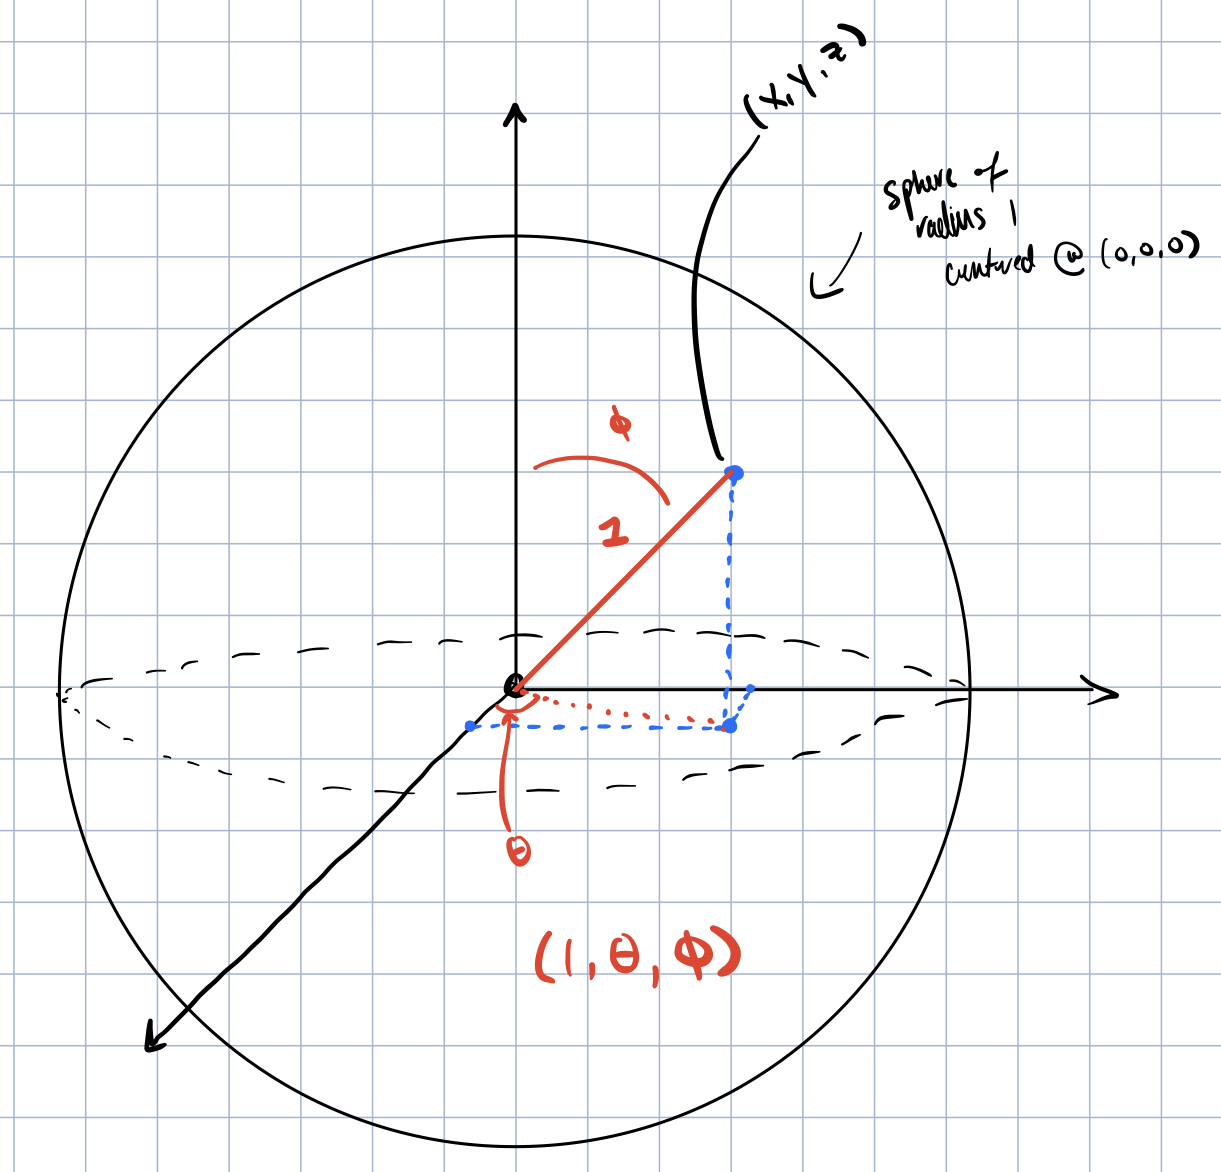 (x,y,z)
sphere of
radius 1
centered @ (0,0,0)
ϕ
1
θ
(1,θ,ϕ)